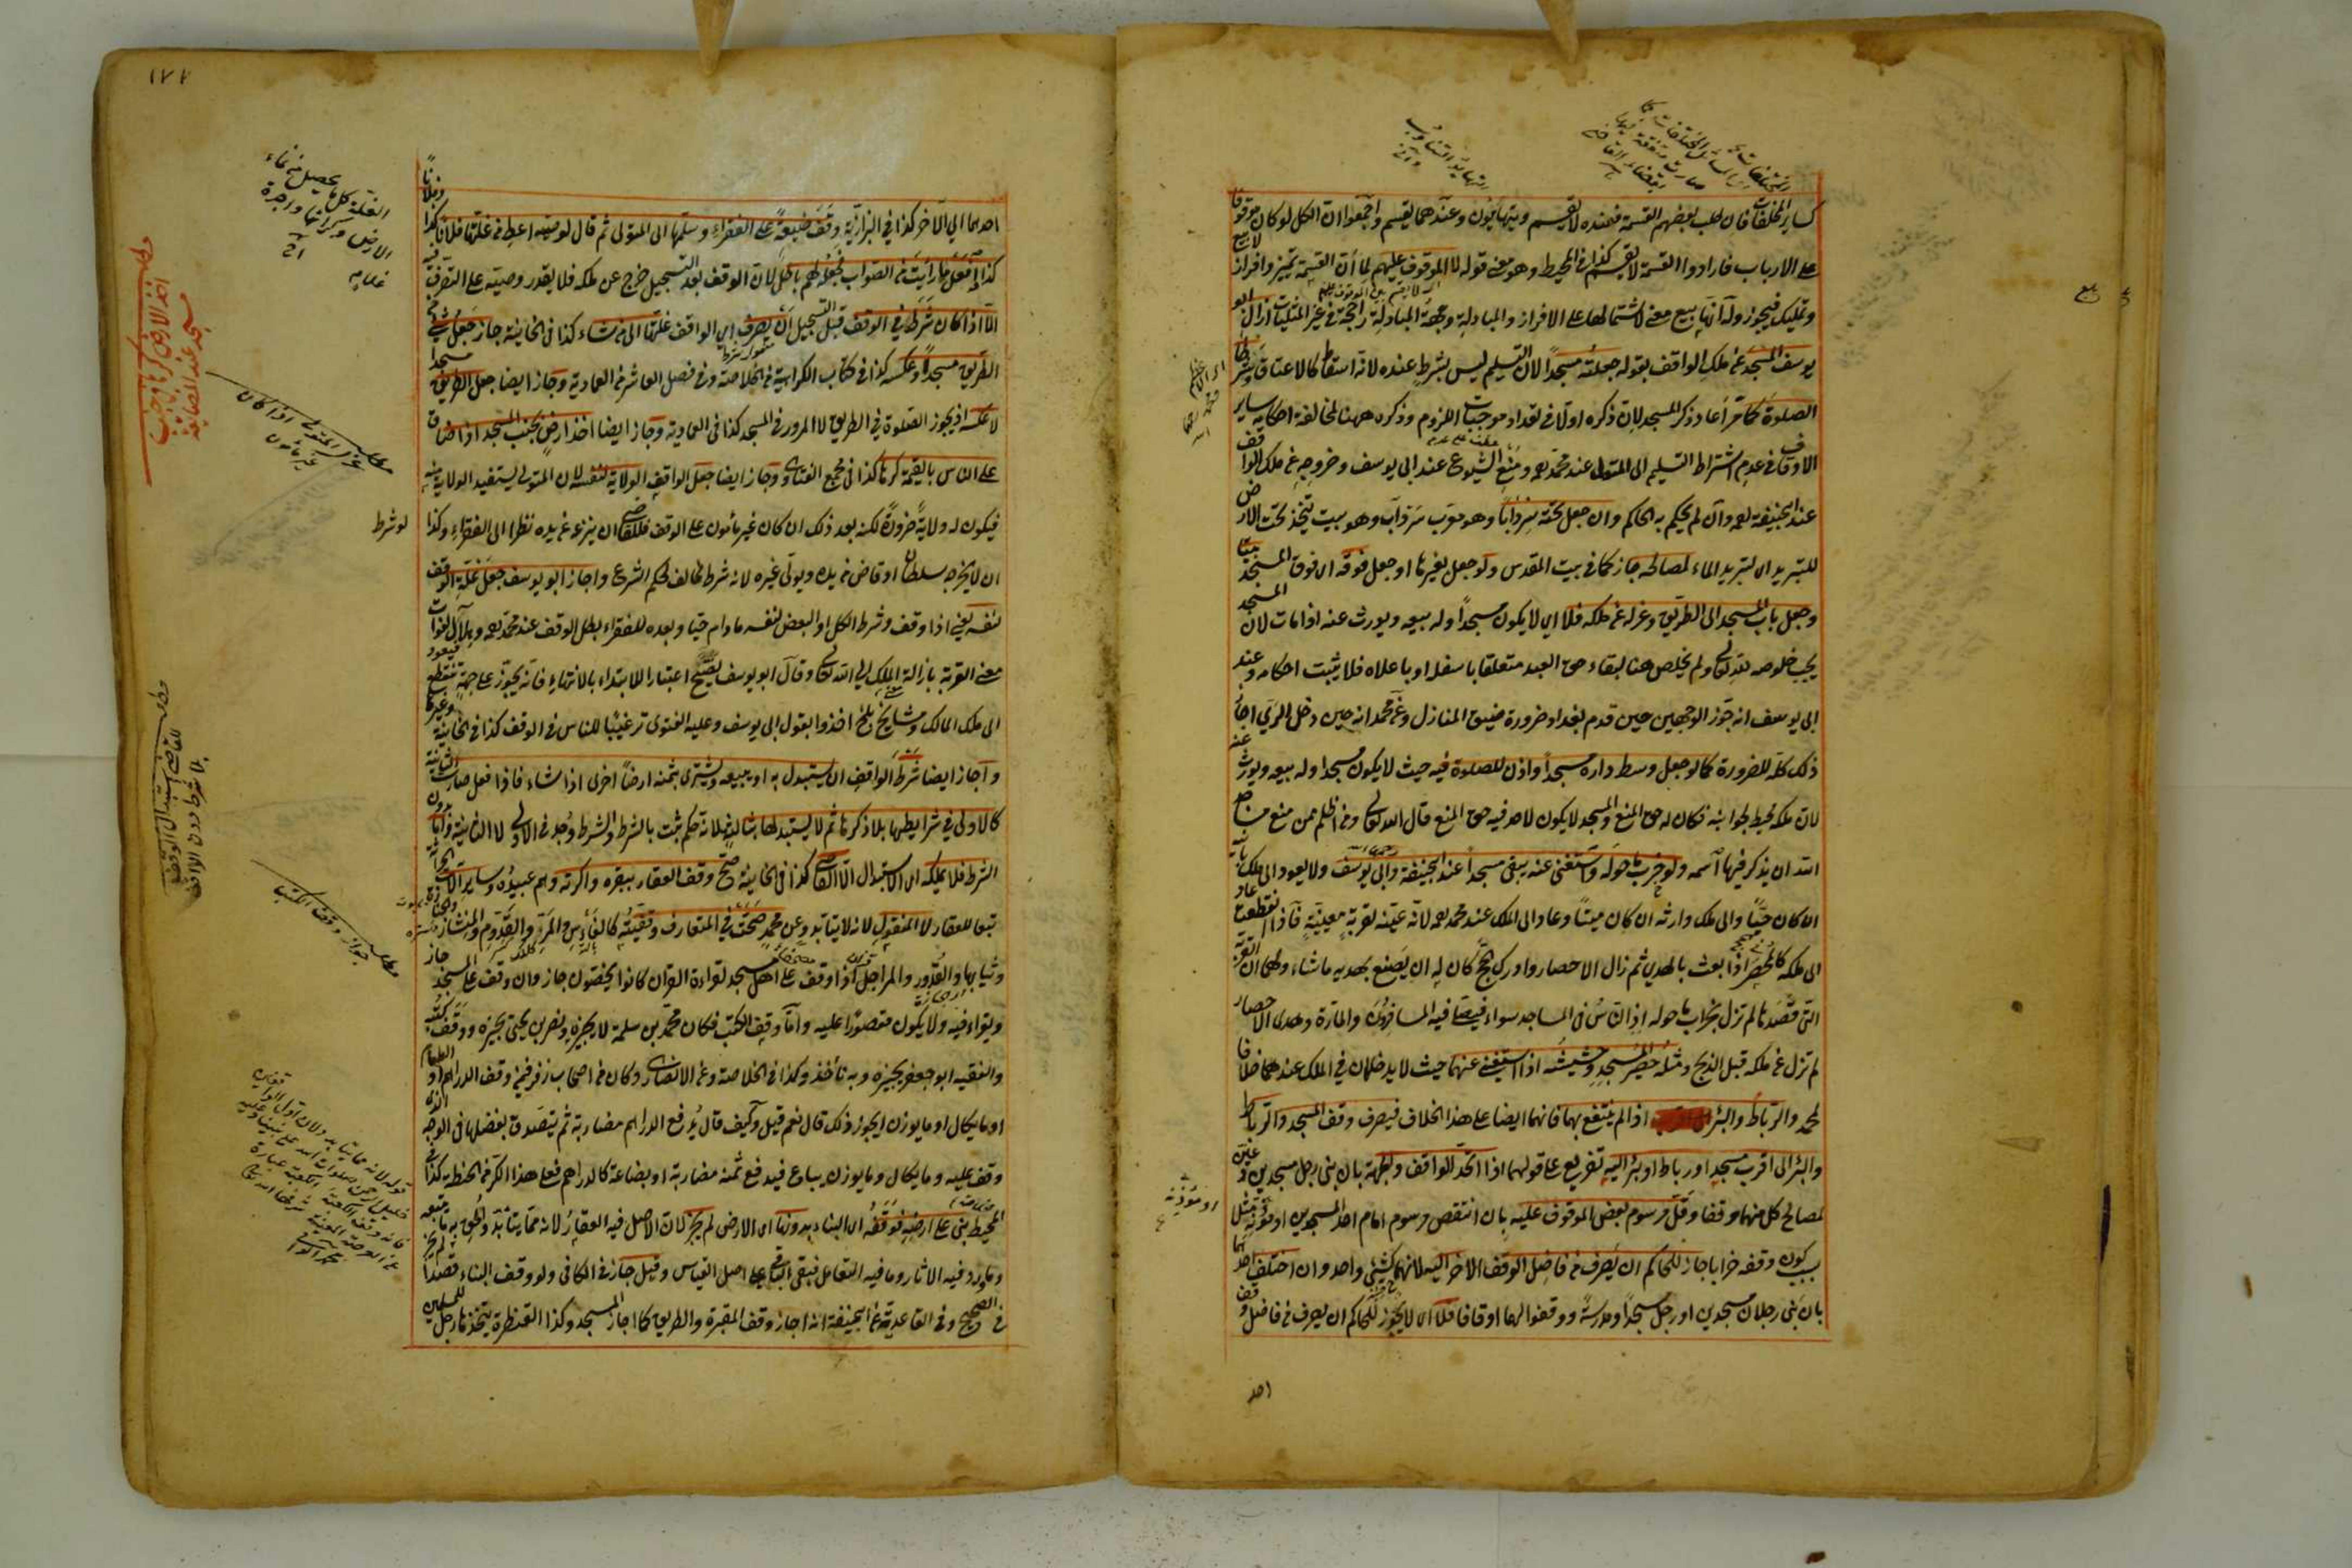 كساير المختلفات فان طلب بعضهم القسمة فعنده لا يقسم ويتهايئون وعندهما يقسم واجمعوا ان الكل لو كان موقوفا
على الارباب فارادوا القسمة لا يقسم كذا في المحيط وهو معنى قوله لا الموقوف عليهم لما أن القسمة تميز وافراز
يوسف المسجد عن ملك الواقف بقوله جعلته مسجدا لان التسليم ليس بشرط عنده لانه اسقاط كالاعتاق وشرطا
الصلوة كما مر أعاد ذكر المسجد لان ذكره اولا في تعداد موجبات اللزوم وذكره ههنا لمخالفة احكامه ساير
الاوقاف في عدم اشتراط التسليم الى المتولى عند محمد ومنع الشيوع عند ابى يوسف وخروجه عن ملك الواقف
عند ابى حنيفة وان لم يحكم به الحاكم وان جعل تحته سردابا وهو معرب سرداب وهو بيت يتخذ تحت الارض
للتبريد اى لتبريد الماء لمصالحه جاز كما في بيت المقدس ولو جعل لغيرها او جعل فوقه اى فوق المسجد بيتا
وجعل باب المسجد الى الطريق وعزله عن ملكه فلا اى لا يكون مسجدا وله بيعه ويورث عنه اذا مات لان المسجد
يجب خلوصه لله تعالى ولم يخلص هنا لبقاء حق العبد متعلقا باسفله او باعلاه فلا يثبت احكامه وعند
ابى يوسف انه جوز الوجهين حين قدم بغداد ضرورة ضيق المنازل وعن محمد انه حين دخل الرى اجاز
ذلك كله للضرورة كما لو جعل وسط داره مسجدا واذن للصلوة فيه حيث لا يكون مسجدا وله بيعه ويورث عنه
لان ملكه محيط بجوانبه فكان له حق المنع والمسجد لا يكون لاحد فيه حق المنع قال الله تعالى ومن اظلم ممن منع مساجد
الله ان يذكر فيها اسمه ولو خرب ما حوله واستغنى عنه يبقى مسجدا عند ابى حنيفة وابى يوسف ولا يعود الى ملك بانيه
ان كان حيا والى ملك وارثه ان كان ميتا وعاد الى الملك عند محمد لانه عينه لقربة معينة فاذا انقطعت عاد
الى ملكه كالمحصر اذا بعث بالهدى ثم زال الاحصار وادرك الحج كان له ان يصنع بهديه ما شاء ولهما ان القربة
التى قصدها لم تزل بخراب ما حوله اذ الناس في المساجد سواء فيصلى فيه المسافرون والمارة وهدى الاحصار
لم تزل عن ملكه قبل الذبح ومثله حصير المسجد وحشيشه اذا استغنى عنهما حيث لا يدخلان في الملك عندهما خلافا
لمحمد والرباط والبئر اذا لم ينتفع بهما فانهما ايضا على هذا الخلاف فيصرف وقف المسجد والرباط
والبئر الى اقرب مسجد او رباط او بئر اليه تفريع على قولهما اذا اتحد الواقف والجهة بان بنى رجل مسجدين وعين
لمصالح كل منهما وقفا وقل مرسوم بعض الموقوف عليه بان انتقص مرسوم امام احد المسجدين او مؤذنه مثلا
بسبب كون وقفه خرابا جاز للحاكم ان يصرف من فاضل الوقف الاخر اليه لانهما كشئ واحد وان اختلف احدهما
بان بنى رجلان مسجدين او رجل مسجدا ومدرسة ووقفوا لهما اوقافا فلا اى لا يجوز للحاكم ان يصرف من فاضل وقف
احد
١٧٢
احدهما الى الاخر كذا في البزازية وقف ضيعة على الفقراء وسلمها الى المتولى ثم قال لوصيه اعط من غلتها فلانا كذا وفلانا
كذا وافعل ما رأيت من الصواب فجعله لهم باطل لان الوقف بعد التسجيل خرج عن ملكه فلا يقدر وصيته على التصرف فيه
الا اذا كان شرط في الوقف قبل التسجيل ان يصرف اى الواقف غلتها الى من شاء كذا في الخانية جاز جعل شئ من
الطريق مسجدا وعكسه كذا في كتاب الكراهية من الخلاصة وفي فصل العاشر من العمادية وجاز ايضا جعل الطريق مسجدا
لا عكسه اذ يجوز الصلوة في الطريق لا المرور في المسجد كذا في العمادية وجاز ايضا اخذ ارض بجنب المسجد اذا ضاق
على الناس بالقيمة كرها كذا في مجمع الفتاوى وجاز ايضا جعل الواقف الولاية لنفسه لان المتولى يستفيد الولاية منه
فيكون له ولاية ضرورة لكنه بعد ذلك ان كان غير مأمون على الوقف فللقاضى ان ينزعه عن يده نظرا الى الفقراء وكذا لو شرط
ان لا يخرجه سلطان او قاض من يده ويولى غيره لانه شرط مخالف لحكم الشرع واجاز ابو يوسف جعل غلة الوقف
لنفسه يعنى اذا وقف وشرط الكل او البعض لنفسه ما دام حيا وبعده للفقراء بطل الوقف عند محمد وهلال لفوات
معنى القربة بازالة الملك الى الله تعالى وقال ابو يوسف يصح اعتبارا للابتداء بالانتهاء فانه يجوز على جهة تنقطع فيعود
الى ملك المالك ومشايخ بلخ اخذوا بقول ابى يوسف وعليه الفتوى ترغيبا للناس في الوقف كذا في الخانية وغيرها
واجاز ايضا شرط الواقف ان يستبدل به او يبيعه ويشترى بثمنه ارضا اخرى اذا شاء فاذا فعل صارت الثانية
كالاولى في شرايطها بلا ذكرها ثم لا يستبدلها بثالثة لانه حكم ثبت بالشرط والشرط وجد في الاولى لا الثانية واما بدون
الشرط فلا يملكه اى الاستبدال الا القاضى كذا في الخانية صح وقف العقار ببقره واكرته وهم عبيده وساير آلات الحراثة
تبعا للعقار لا المنقول لانه لا يتأبد وعن محمد صحته في المتعارف وقفيته كالفأس والمر والقدوم والمنشار والجنازة
وثيابها والقدور والمراجل اذا وقف على اهل مسجد لقراءة القران كانوا يحصون جاز وان وقف على المسجد جاز
ويقراء فيه ولا يكون مقصورا عليه واما وقف الكتب فكان محمد بن سلمة لا يجيزه ونصر بن يحيى يجيزه ووقف كتبه
والفقيه ابو جعفر يجيزه وبه نأخذ وكذا في الخلاصة وعن الانصارى وكان من اصحاب زفر فيمن وقف الدراهم او الطعام
او ما يكال او ما يوزن ايجوز ذلك قال نعم قيل وكيف قال يدفع الدراهم مضاربة ثم يتصدق بفضلها في الوجه الذى
وقف عليه وما يكال وما يوزن يباع فيدفع ثمنه مضاربة او بضاعة كالدراهم فعلى هذا الكر من الحنطة كذا في
المحيط بنى على ارضه فوقفه اى البناء بدونها اى الارض لم يجز لان الاصل فيه العقار لانه مما يتأبد والحق به ما يتبعه
وما ورد فيه الاثار وما فيه التعامل فبقى الباقى على اصل القياس وقيل جاز في الكافى ولو وقف البناء قصدا لم يجز
في الصحيح وفي القاعدية عن ابى حنيفة انه اجاز وقف المقبرة والطريق كما اجاز المسجد وكذا القنطرة يتخذها رجل للمسلمين